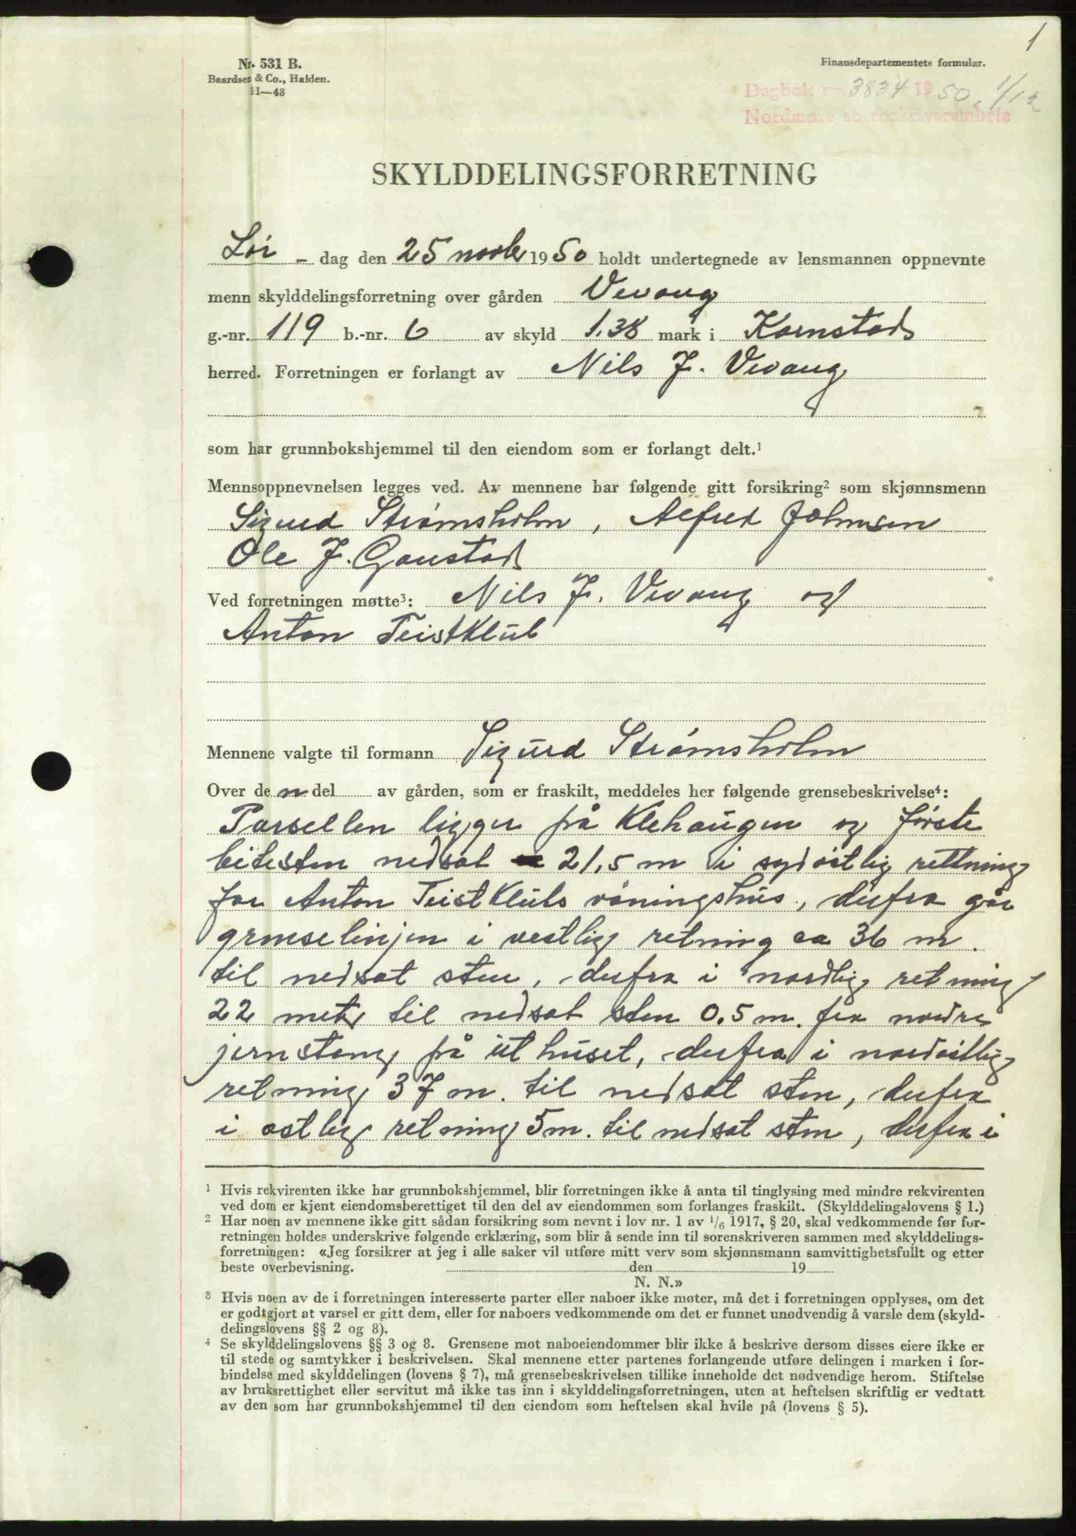 1
Nr. 531 B.
Baardsen & Co., Halden.
11—48
Finansdepartementets formular.
Dagbok nr. 3834 1950, 1/12
Nordmøre sorenskriverembete
SKYLDDELINGSFORRETNING
Lør - dag den 25 novbr 1950 holdt undertegnede av lensmannen oppnevnte
menn skylddelingsforretning over gården Vevang
g.-nr. 119 b.-nr. 6 av skyld 1.38 mark i Kornstad
herred. Forretningen er forlangt av Nils J. Vevang
som har grunnbokshjemmel til den eiendom som er forlangt delt.¹
Mennsoppnevnelsen legges ved. Av mennene har følgende gitt forsikring² som skjønnsmenn
Sigurd Strømsholm, Alfred Johnsen
Ole J. Gaustad
Ved forretningen møtte³: Nils J. Vevang og
Anton Teistklub
Mennene valgte til formann Sigurd Strømsholm
Over den del av gården, som er fraskilt, meddeles her følgende grensebeskrivelse⁴:
Parsellen ligger på Klehaugen og første
bitesten nedsat 21,5 m i sydøstlig rettning
for Anton Teistklubs våningshus, derfra går
grenselinjen i vestlig retning ca 36 m.
til nedsat sten, derfra i nordlig retning
22 meter til nedsat sten 0.5 m. fra nordre
jernstang på uthuset, derfra i nordøstlig
retning 37 m. til nedsat sten, derfra
i østlig retning 5 m. til nedsat sten, derfra i
¹ Hvis rekvirenten ikke har grunnbokshjemmel, blir forretningen ikke å anta til tinglysing med mindre rekvirenten
ved dom er kjent eiendomsberettiget til den del av eiendommen som forlanges fraskilt. (Skylddelingslovens § 1.)
² Har noen av mennene ikke gitt sådan forsikring som nevnt i lov nr. 1 av 1/6 1917, § 20, skal vedkommende før for-
retningen holdes underskrive følgende erklæring, som blir å sende inn til sorenskriveren sammen med skylddelings-
forretningen: «Jeg forsikrer at jeg i alle saker vil utføre mitt verv som skjønnsmann samvittighetsfullt og etter
beste overbevisning. den 19
N. N.»
³ Hvis noen av de i forretningen interesserte parter eller naboer ikke møter, må det i forretningen opplyses, om det
er godtgjort at varsel er gitt dem, eller for naboers vedkommende om det er funnet unødvendig å varsle dem (skyld-
delingslovens §§ 2 og 8).
⁴ Se skylddelingslovens §§ 3 og 8. Grensene mot naboeiendommer blir ikke å beskrive dersom disses eiere ikke er
til stede og samtykker i beskrivelsen. Skal mennene etter partenes forlangende utføre delingen i marken i for-
bindelse med skylddelingen (lovens § 7), må grensebeskrivelsen tillike inneholde det nødvendige herom. Stiftelse
av bruksrettighet eller servitut må ikke tas inn i skylddelingsforretningen, uten at heftelsen skriftlig er vedtatt
av den som har grunnbokshjemmel til den eiendom som heftelsen skal hvile på (lovens § 5).